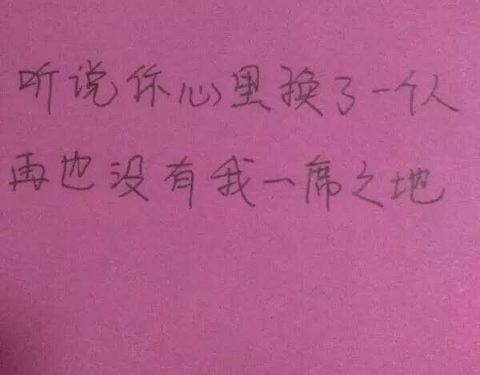 听说你心里换了一个人
再也没有我一席之地